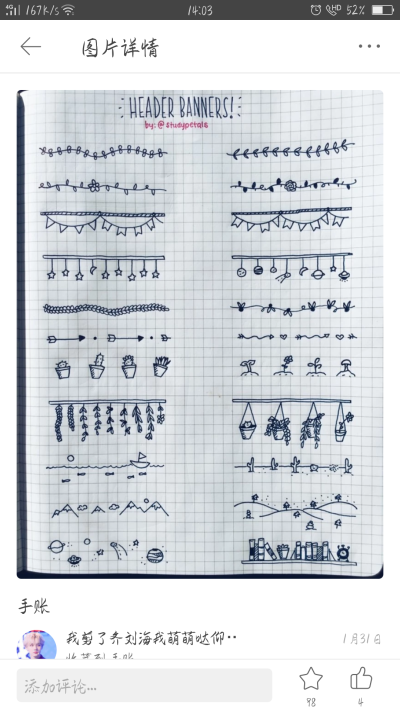 4G 167K/s 14:03 HD 52%
图片详情
HEADER BANNERS!
by: @studypetals
手账
我剪了齐刘海我萌萌哒仰··
1月31日
添加评论...
98
4